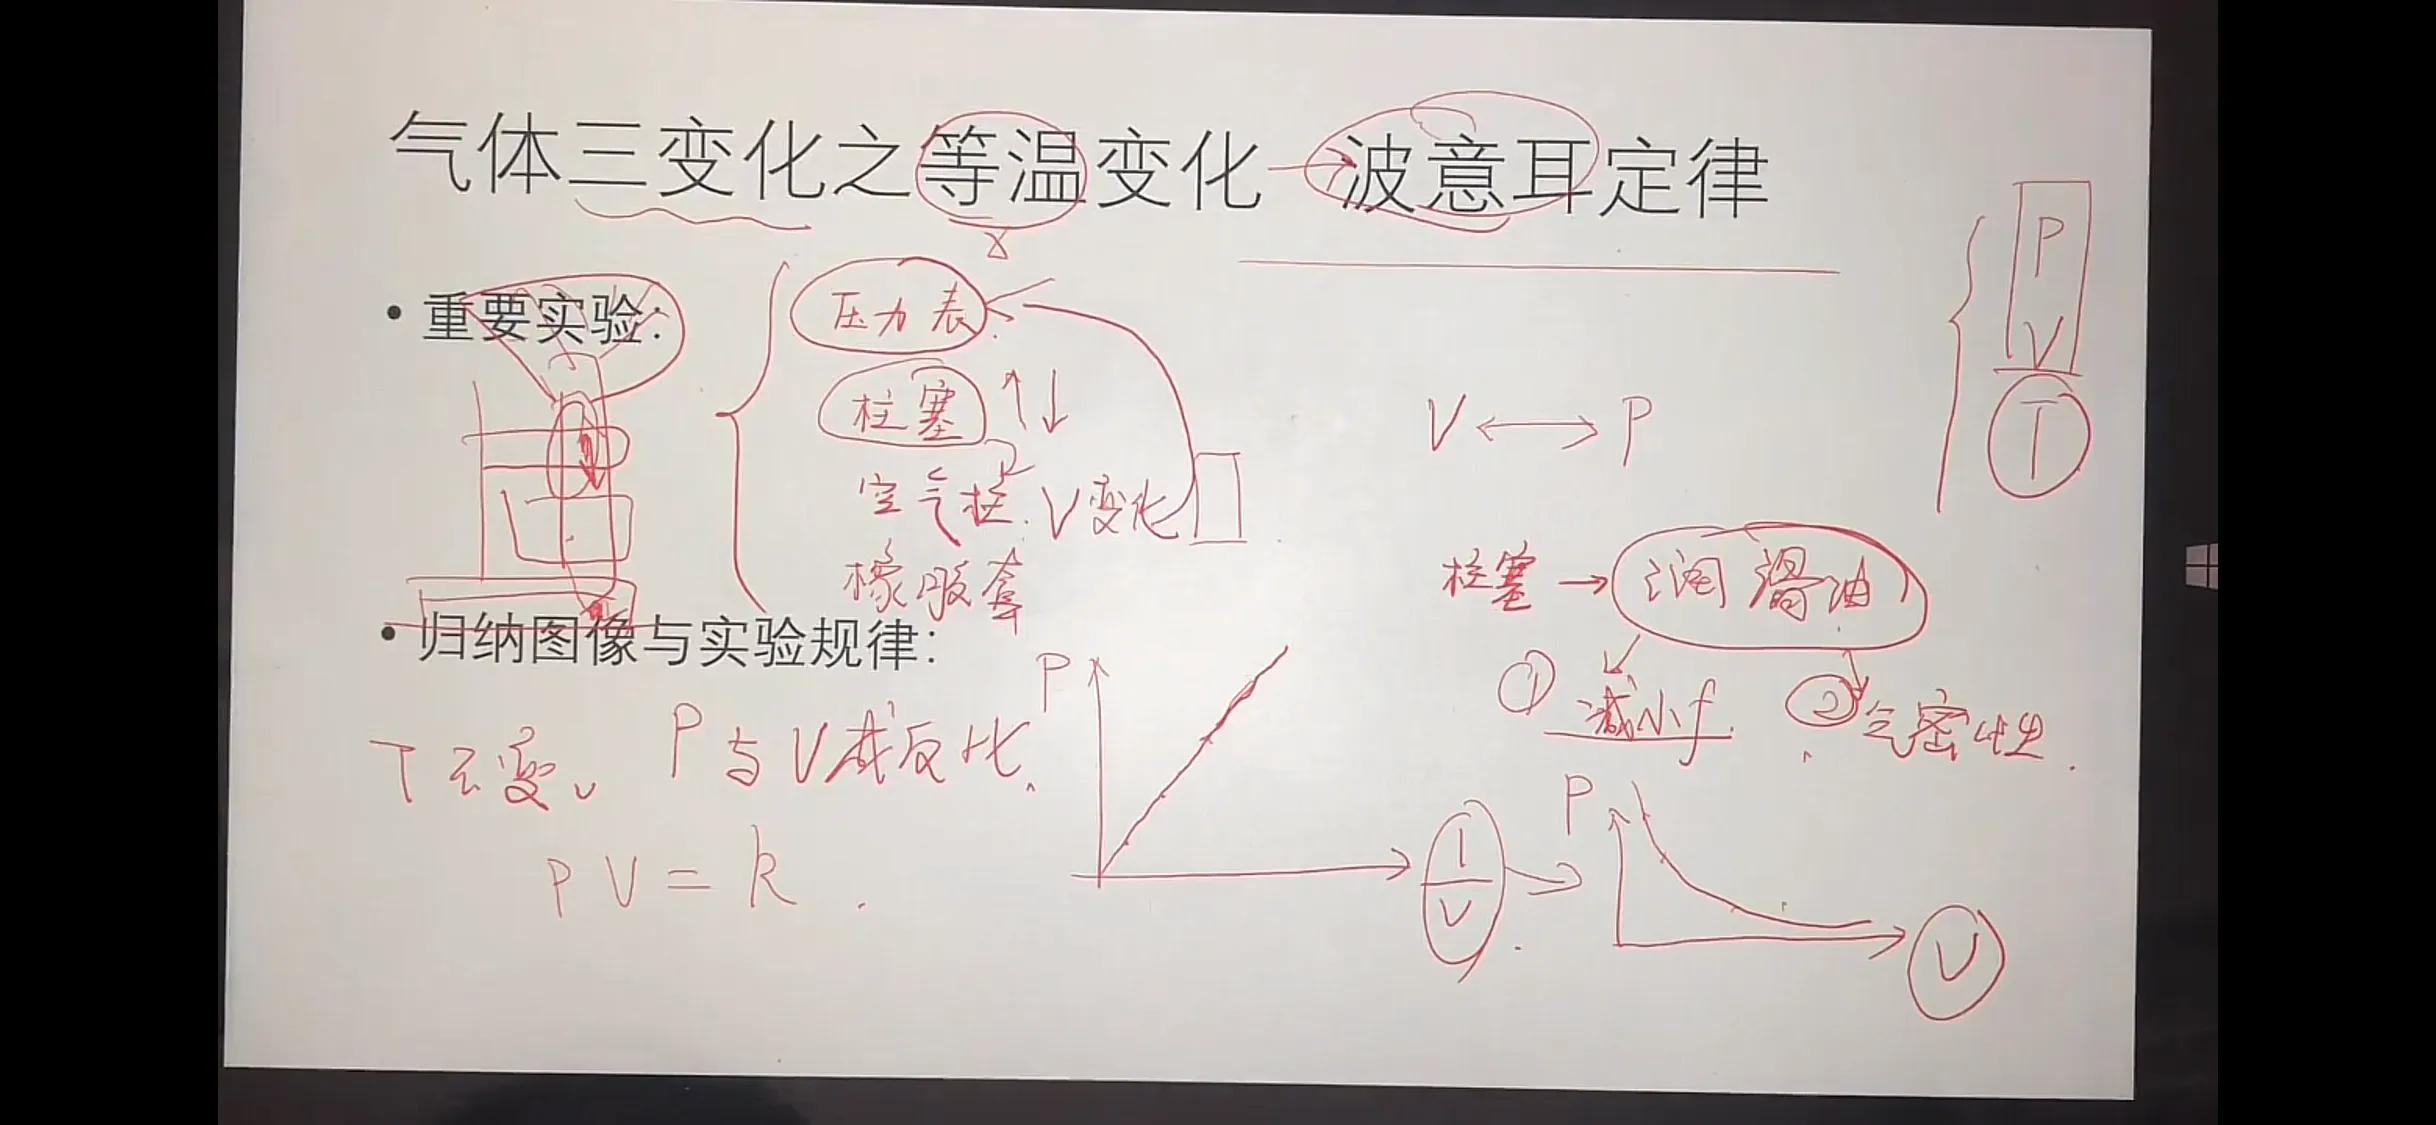 气体三变化之等温变化-波意耳定律
P
V
T
• 重要实验:
压力表
柱塞
空气柱.V变化
橡胶套
V ↔ P
柱塞→润滑油
① 减小f. ②气密性.
• 归纳图像与实验规律:
T不变、P与V成反比.
PV=k.
P
1/V
P
V